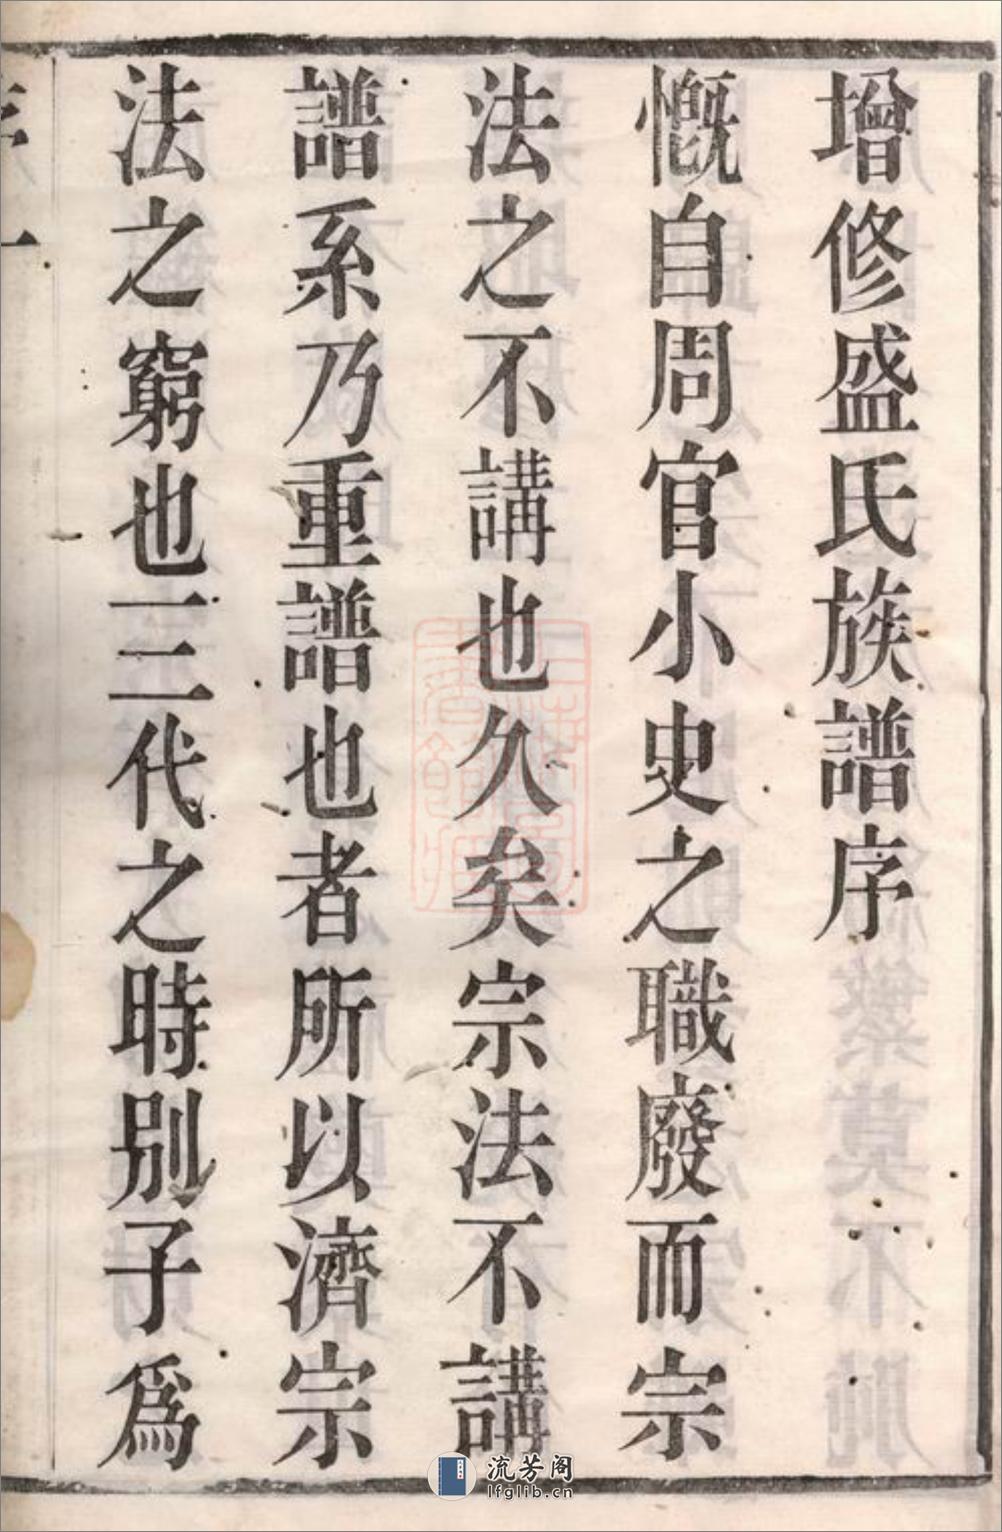 增修盛氏族譜序
慨自周官小史之職廢而宗
法之不講也久矣宗法不講
譜系乃重譜也者所以濟宗
法之窮也三代之時別子爲
一
流芳阁
lfglib.cn